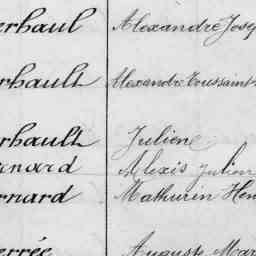 erhaul Alexandre Jose
erhault Alexandre Toussaint
erhault Julien
ernard Alexis Julien
ernard Mathurin Hen
errée Auguste Mar